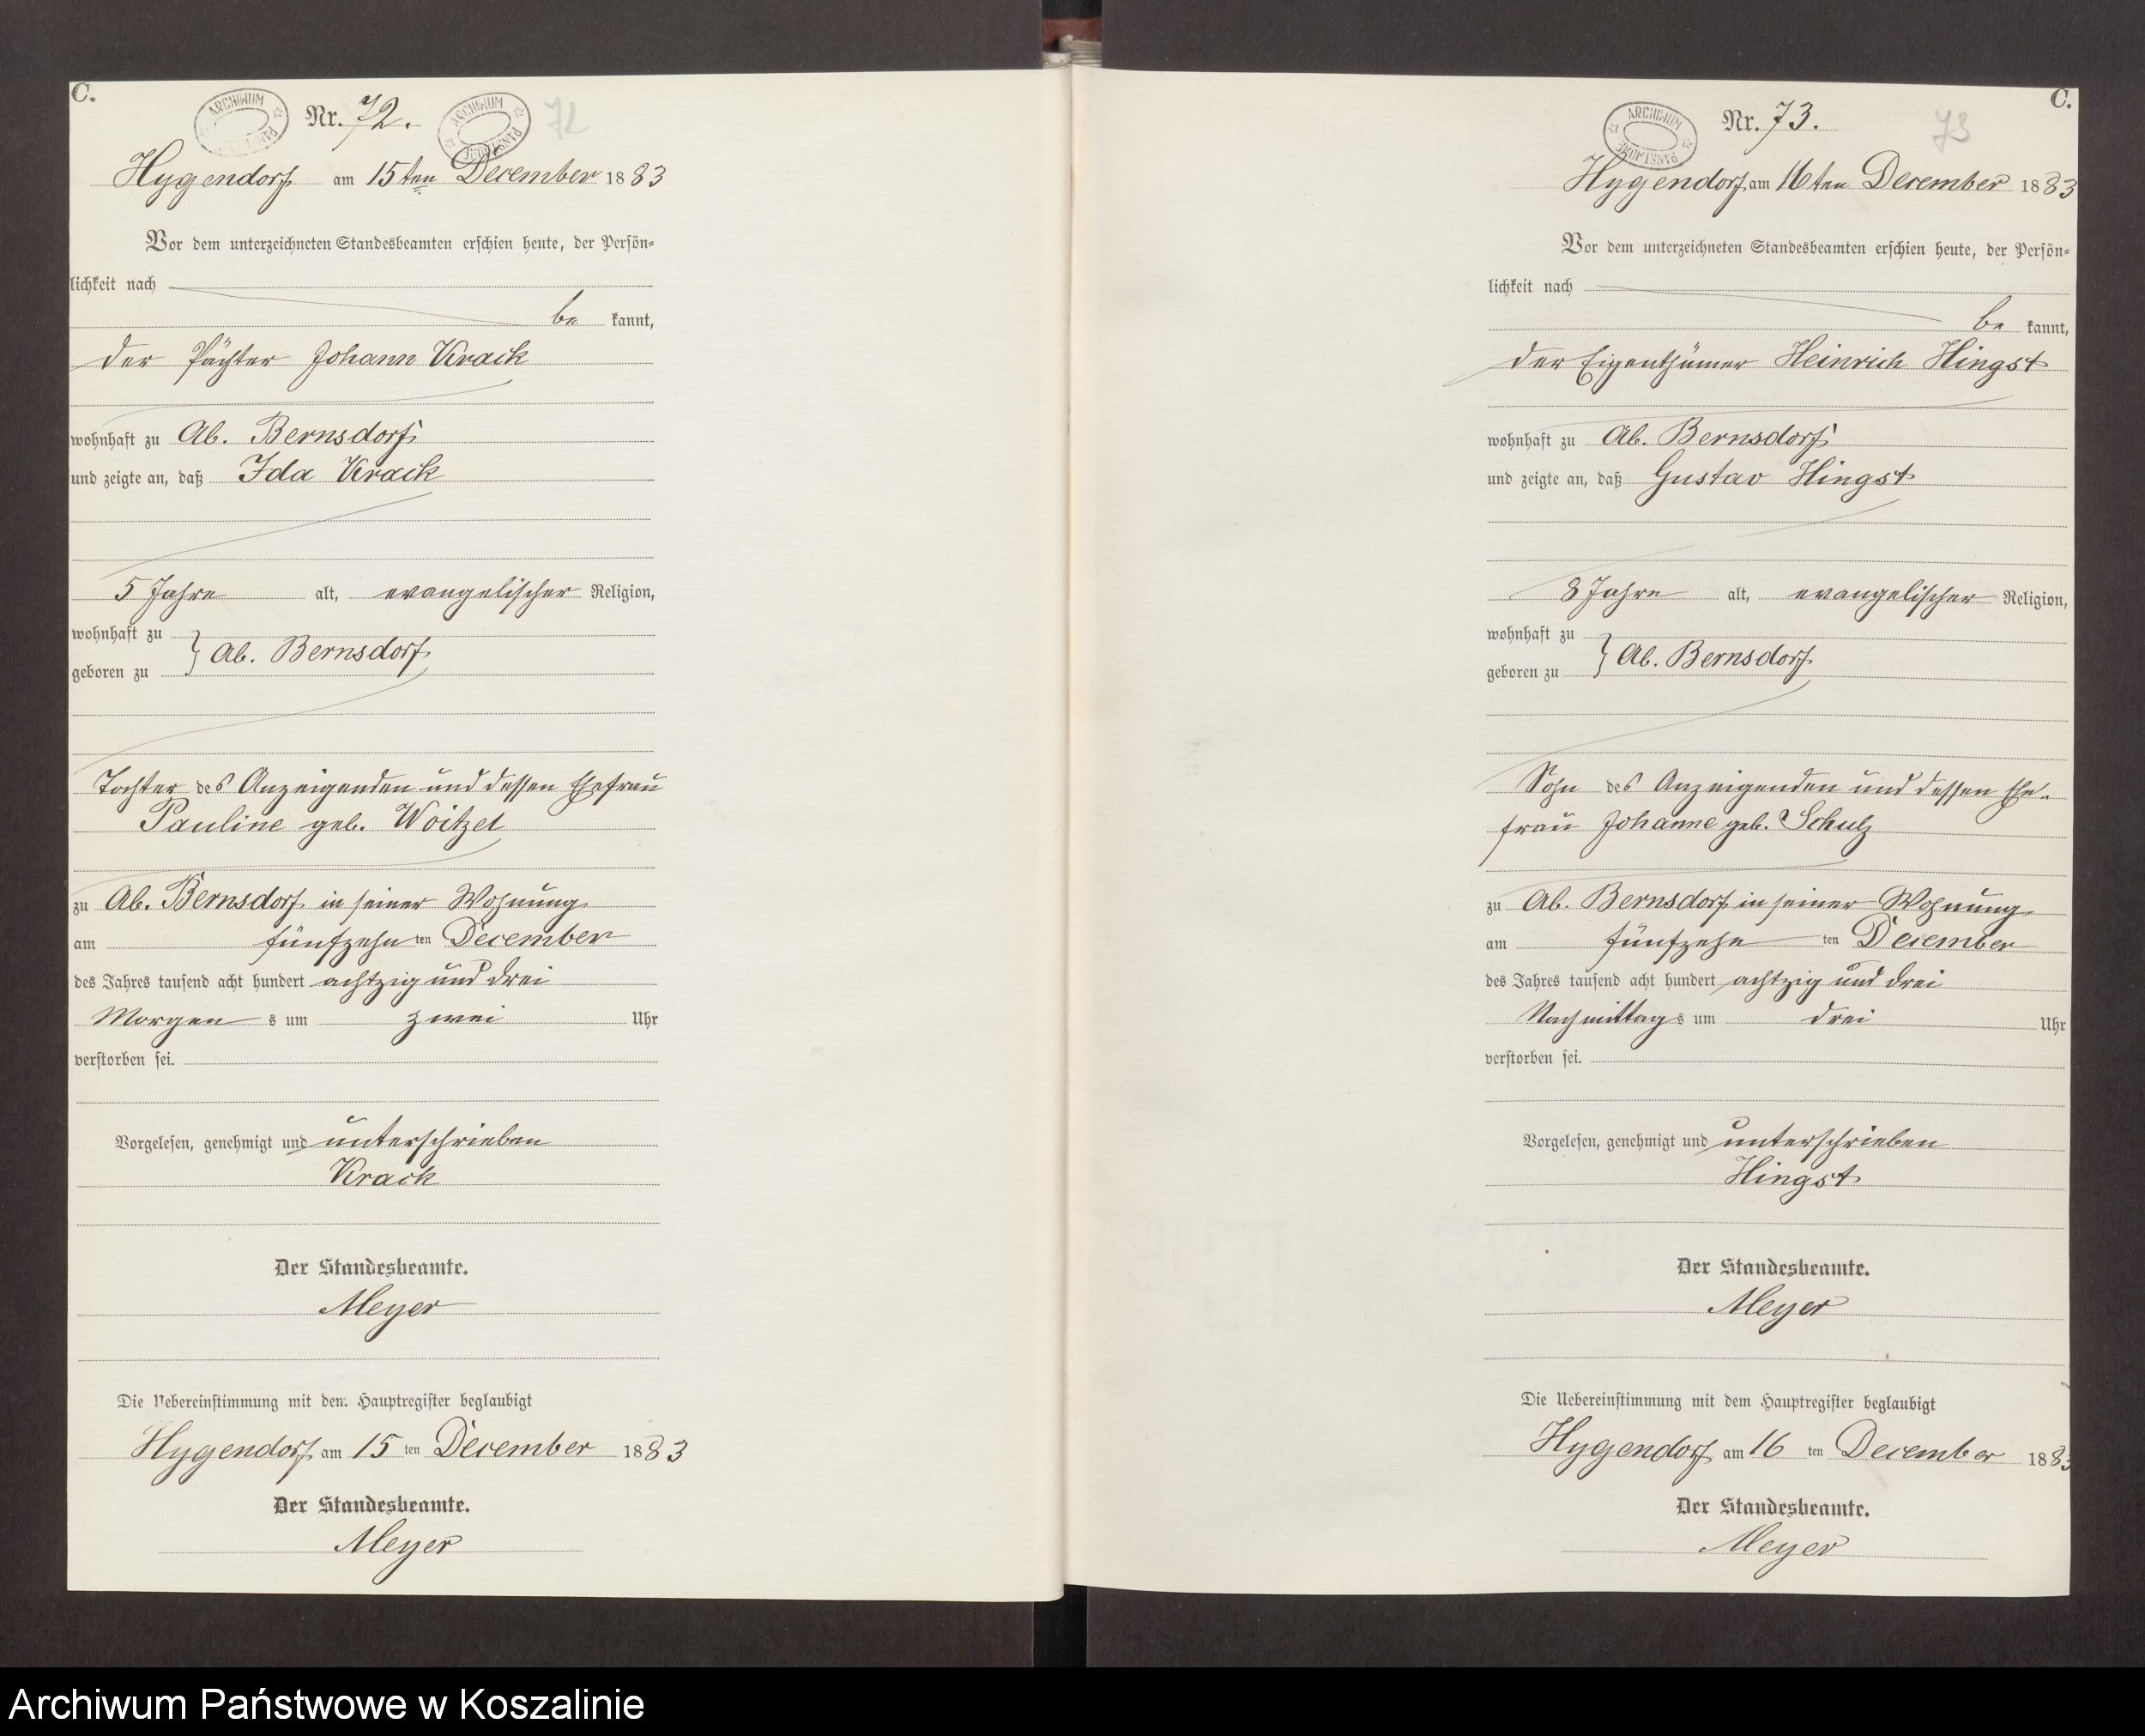 C.
Nr. 72.
72
Hygendorf am 15ten December 1883
Vor dem unterzeichneten Standesbeamten erschien heute, der Persön=
lichkeit nach
be kannt,
der Pächter Johann Krack
wohnhaft zu Ab. Bernsdorf
und zeigte an, daß Ida Krack
5 Jahre alt, evangelischer Religion,
wohnhaft zu
geboren zu } Ab. Bernsdorf
Tochter des Anzeigenden und dessen Ehefrau
Pauline geb. Woitzel
zu Ab. Bernsdorf in seiner Wohnung
am fünfzehn ten December
des Jahres tausend acht hundert achtzig und drei
Morgen s um zwei Uhr
verstorben sei.
Vorgelesen, genehmigt und unterschrieben
Krack
Der Standesbeamte.
Meyer
Die Uebereinstimmung mit dem Hauptregister beglaubigt
Hygendorf am 15 ten December 1883
Der Standesbeamte.
Meyer
C.
ARCHIWUM PAŃSTWOWE
Nr. 73.
73
Hygendorf am 16ten December 1883
Vor dem unterzeichneten Standesbeamten erschien heute, der Persön=
lichkeit nach
be kannt,
der Eigenthümer Heinrich Hingst
wohnhaft zu Ab. Bernsdorf
und zeigte an, daß Gustav Hingst
8 Jahre alt, evangelischer Religion,
wohnhaft zu
geboren zu } Ab. Bernsdorf
Sohn des Anzeigenden und dessen Ehe-
frau Johanne geb. Schulz
zu Ab. Bernsdorf in seiner Wohnung
am fünfzehn ten December
des Jahres tausend acht hundert achtzig und drei
Nachmittag s um drei Uhr
verstorben sei.
Vorgelesen, genehmigt und unterschrieben
Hingst
Der Standesbeamte.
Meyer
Die Uebereinstimmung mit dem Hauptregister beglaubigt
Hygendorf am 16 ten December 1883
Der Standesbeamte.
Meyer
Archiwum Państwowe w Koszalinie